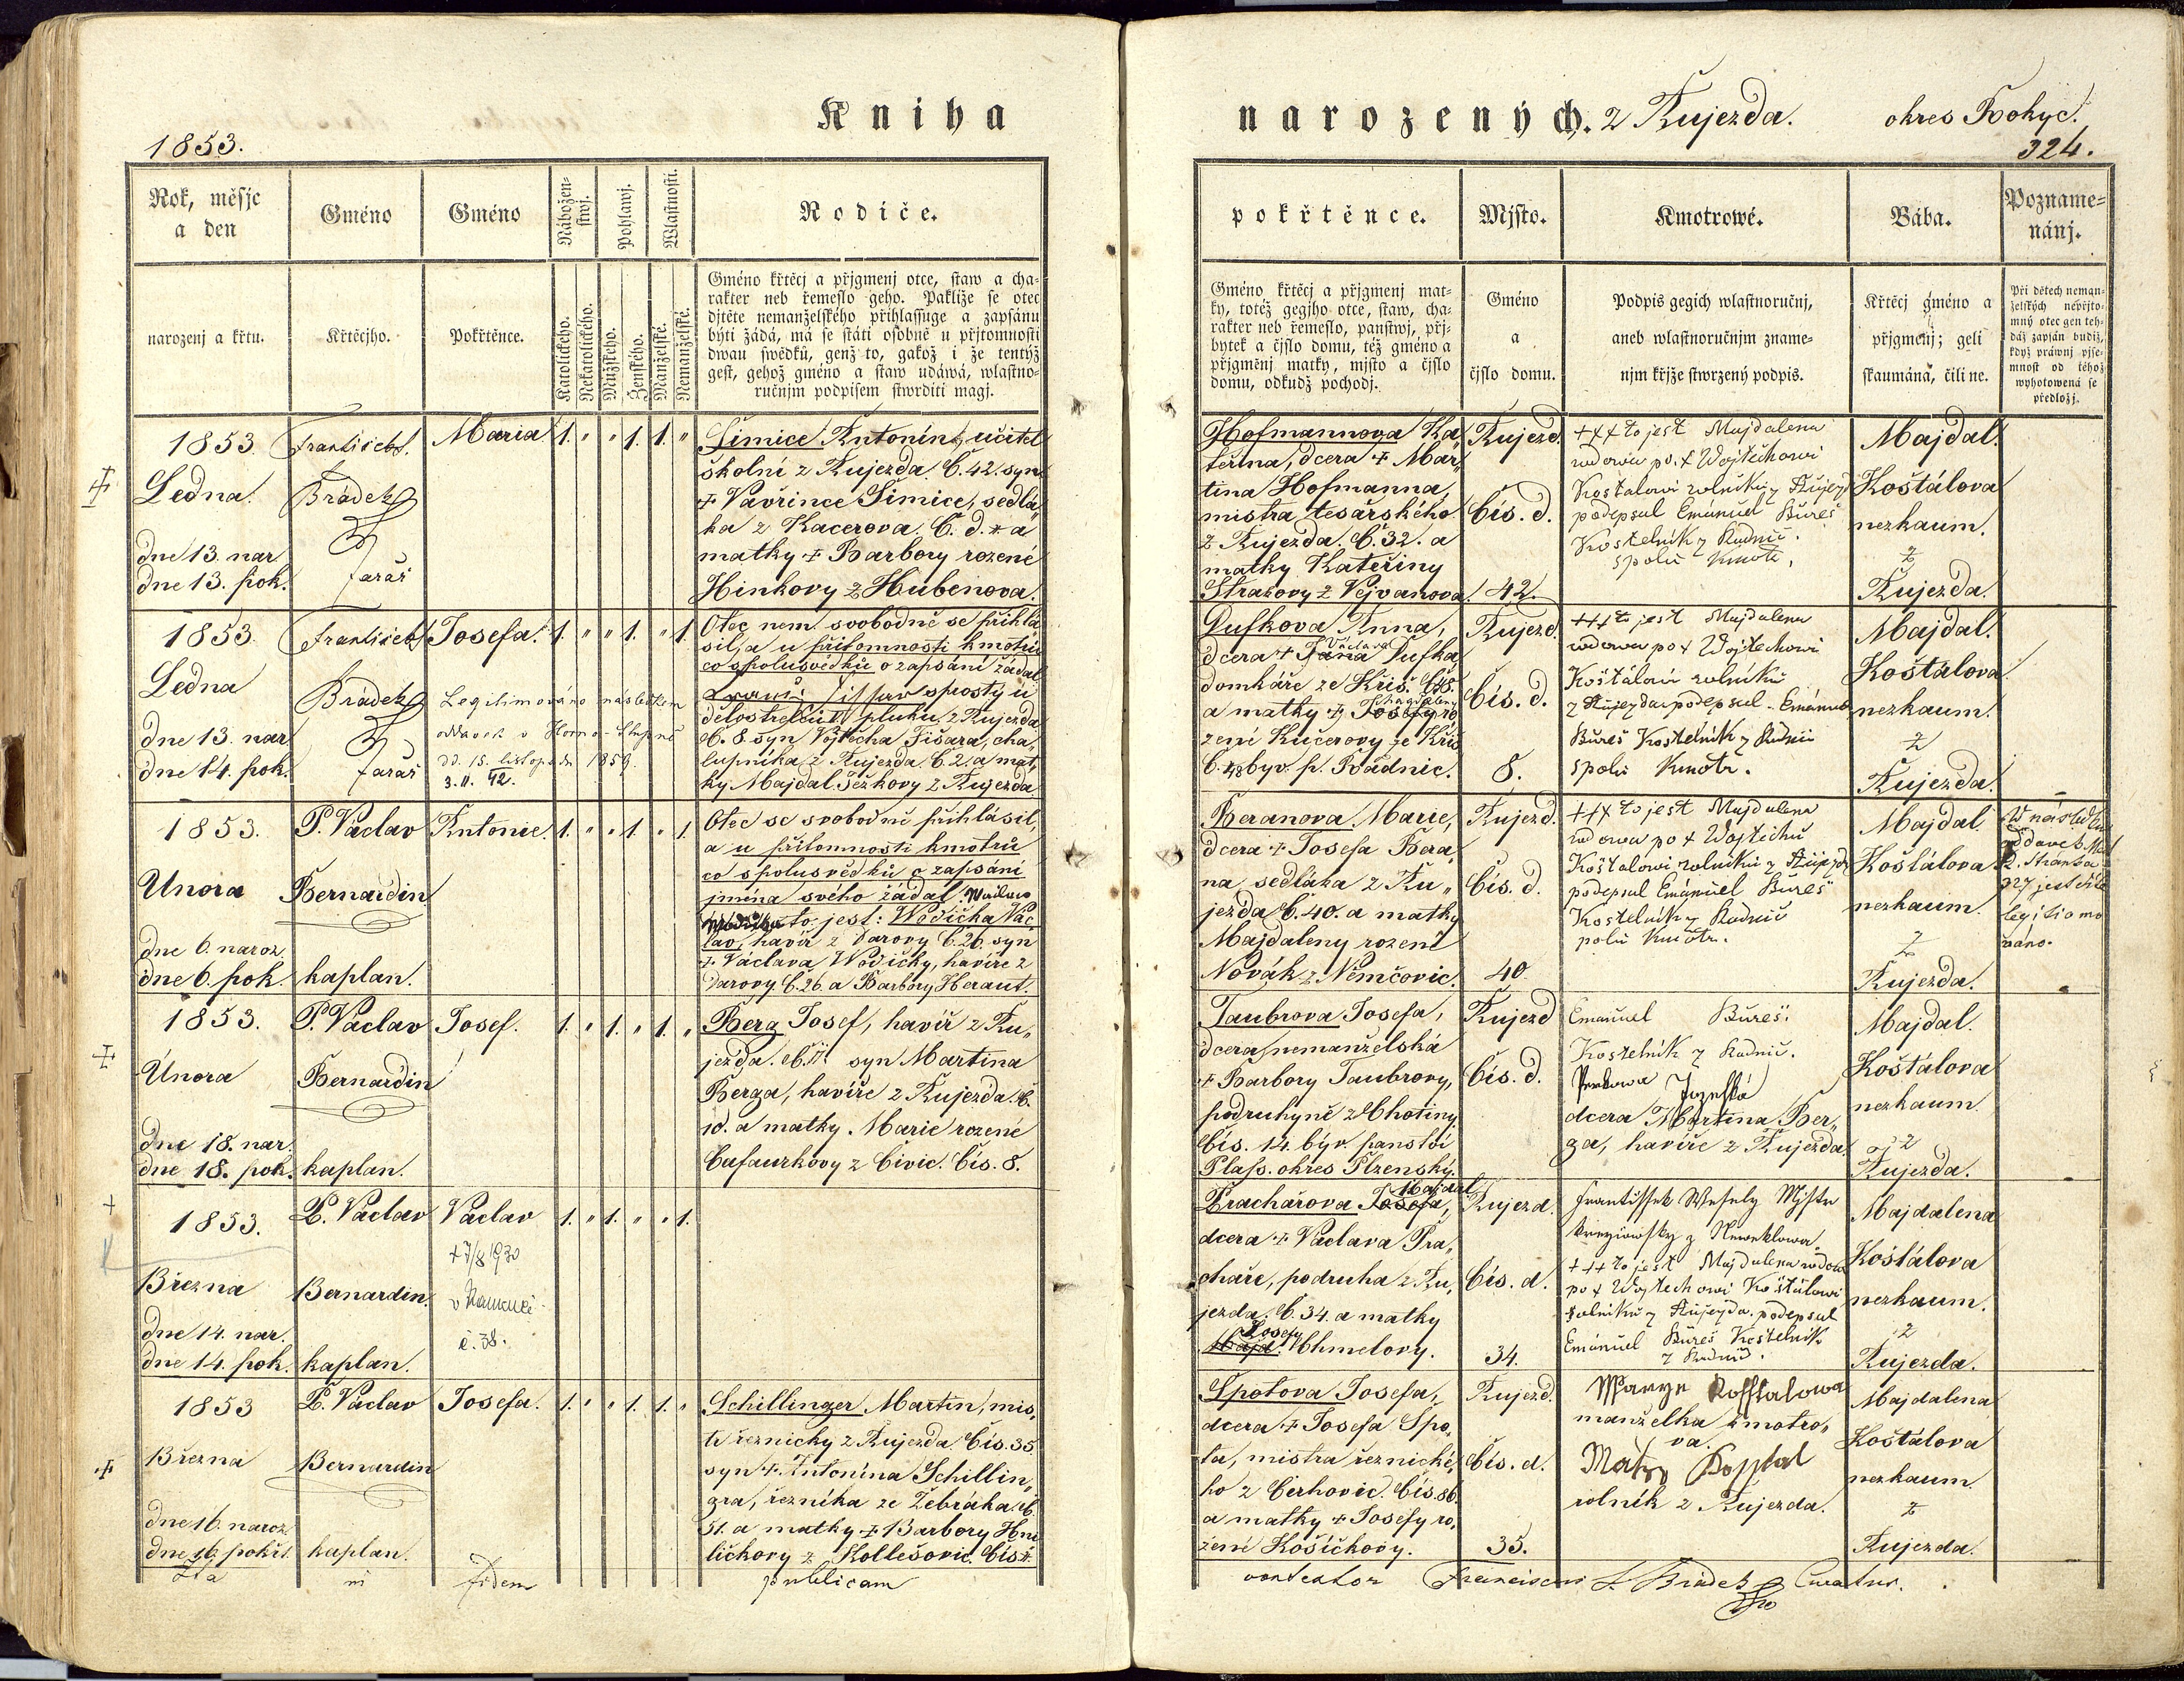 Kniha
narozených. z Kujezda. okres
1853.
324.
Rok, měsjc
a den
Gméno
Gméno
Nábožen-
stwj.
Pohlawj.
Wlastnosti.
Rodiče.
pokřtěnce.
Mjsto.
Kmotrowé.
Bába.
Pozname-
nánj.
narozenj a křtu.
Křtěcjho.
Pokřtěnce.
Katolického.
Nekatolického.
Mužského.
Ženského.
Manželské.
Nemanželské.
Gméno křtěcj a přjgmenj otce, staw a cha-
rakter neb řemeslo geho. Pakliže se otec
djtěte nemanželského přihlassuge a zapsánu
býti žádá, má se státi osobně u přjtomnosti
dwau swědků, genž to, gakož i že tentýž
gest, gehož gméno a staw udáwá, wlastno-
ručnjm podpisem stwrditi magj.
Gméno křtěcj a přjgmenj mat-
ky, totéž gegjho otce, staw, cha-
rakter neb řemeslo, panstwj, přj-
bytek a čjslo domu, též gméno a
přjgměnj matky, mjsto a čjslo
domu, odkudž pochodj.
Gméno
a
čjslo domu.
Podpis gegich wlastnoručnj,
aneb wlastnoručnjm zname-
njm křjže stwrzený podpis.
Křtěcj gméno a
přjgmenj; geli
skaumáná, čili ne.
Při dětech neman-
želských nebýto-
mný otec gen teh-
dáž zapsán budiž,
když práwnj pjse-
mnost od téhož
wyhotowená se
předložj.
1853.
Ledna.
dne 13. nar.
dne 13. pok.
František
Brádek
farář
Maria
1. " " 1. 1. "
Šimice Antonín, učitel
školní z Kujezda. Č. 42. syn
+ Vavřince Šimice, sedlá,,
ka z Kacerova. Č. d. * a
matky + Barbory rozené
Hinkovy z Hubenova.
Hofmannova Ka,,
teřina, dcera + Mar,,
tina Hofmanna,
mistra tesařského
z Kujezda. Č. 32. a
matky Kateřiny
Strasovy z Vejvanova.
Kujezd.
Čís. d.
42.
+++ to jest Majdalena
wdowa po + Wojtěchowi
Koštalowi rolníku z Kujezd
podepsal Emanuel Bureš
Kostelník z Radnic.
spolu kmotr.
Majdal.
Koštálova
nezkaum.
z
Kujezda.
1853.
Ledna
dne 13. nar.
dne 14. pok.
František
Brádek
farář
Josefa.
Legitimováno následkem
oddavek v Horno-Stupně
dd. 15. listopadu 1859.
3. II. 42.
1. " " 1. " 1.
Otec nem. svobodně se přihlá
sil, a u přítomnosti kmotrů
co spolusvědků o zapsání žádal
dělostřelců pluku, z Kujezda
Č. 8. syn Vojtěcha Fišara, cha,,
lupníka z Kujezda. Č. 2. a mat,,
ky Majdal. Ježkovy z Kujezda
Dufkova Anna,
Václava
dcera + Jana Dufka
domkáře ze Kříš. Č. 48.
Magdaleny
a matky + Josefy ro
zení Kučerovy ze Kříš
Č. 48 býv. p. Radnic.
Kujezd.
Čís. d.
8.
+++ to jest Majdalena
wdowa po + Wojtěchowi
Koštálowi rolníku
z Kujezda podepsal Emánuel
Bureš Kostelník z Radnic
spolu kmotr.
Majdal.
Koštálova
nezkaum.
z
Kujezda.
1853.
Února
dne 6. naroz.
dne 6. pok.
P. Václav
Bernardin
kaplan.
Antonie.
1. " " 1. " 1.
Otec se svobodně přihlásil,
a u přítomnosti kmotrů
co spolusvědků o zapsání
jména svého žádal.
to jest: Wodička Vác
lav, havíř z Darovy Č. 26. syn
+ Václava Wodičky, havíře z
Darovy. Č. 26. a Barbory Heraut.
Beranova Marie,
dcera + Josefa Bera,,
na sedláka z Ku,,
jezda Č. 40. a matky
Majdaleny rozené
Novák z Němčovic.
Kujezd.
Čís. d.
40.
+++ to jest Majdalena
wdowa po + Wojtěchu
Koštalowi rolníku z Kujezda
podepsal Emánuel Bureš
Kostelník z Radnic
polu kmotr.
Majdal.
Koštálova
nezkaum.
z
Kujezda.
1853.
Února
dne 18. nar.
dne 18. pok.
P. Václav
Bernardin
kaplan.
Josef.
1. " 1. " 1. "
Berg Josef, havíř z Ku,,
jezda. Č. 17. syn Martina
Berga, havíře z Kujezda. Č.
id. a matky Marie rozené
Cafaurkovy z Civic. Čís. 8.
Taubrova Josefa,
dcera nemanželská
+ Barbory Taubrovy,
podruhyně z Chotiny
Čís. 14. býv. panství
Plass. okres Plzenský.
Kujezd
Čís. d.
Emanuel Bureš
Kostelník z Radnic.
dcera Martina Ber,,
ga, havíře z Kujezda
Majdal.
Koštálova
nezkaum.
z
Kujezda.
1853.
Března
dne 14. nar.
dne 14. pok.
P. Václav
Bernardin.
kaplan.
Václav
+ 7/8 1930
č. 38.
1. " 1. " " 1.
Majdal
Prachařova Josefa,
dcera + Václava Pra,,
chaře, podruha z Ku,,
jezda. Č. 34. a matky
Josefy
Majd. Chmelovy.
Kujezd.
Čís. d.
34.
Frantissek Wesely Mistr
+++ to jest Majdalena wdowa
po + Wojtechowi Koštálowi
rolníku z Kujezda. podepsal
Emánuel Bureš Kostelník
z Radnic.
Majdalena
Koštálova
nezkaum.
z
Kujezda.
1853
Března
dne 16. naroz.
dne 16. pokřt.
P. Václav
Bernardin
kaplan.
Josefa.
1. " " 1. 1. "
Schillinger Martin, mis,,
tr řeznický z Kujezda. Čís. 35.
syn +. Antonína Schillin,,
gra, řezníka ze Žebráka. Č.
51. a matky + Barbory Hni
ličkovy z Kollešovic. Čís.
Spotova Josefa,
dcera + Josefa Spo,,
ta, mistra řeznické,,
ho z Cerhovic. Čís. 86.
a matky + Josefy ro,,
zení Košíčkovy.
Kujezd.
Čís. d.
35.
Marye Kosstalowa
manželka kmotro,,
va.
rolník z Kujezda.
Majdalena
Koštálova
nezkaum.
z
Kujezda.
Ita in fidem publicam
Franciscus Brádek Curatus.